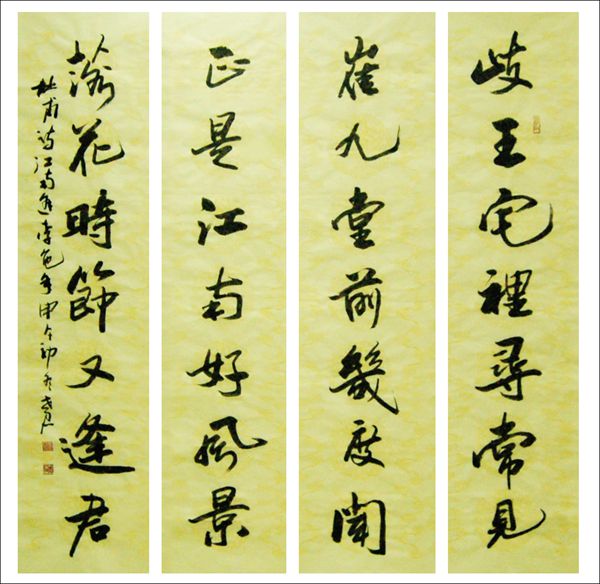 岐王宅裡尋常見
崔九堂前幾度聞
正是江南好風景
落花時節又逢君
杜甫詩江南逢李龜年甲午初冬